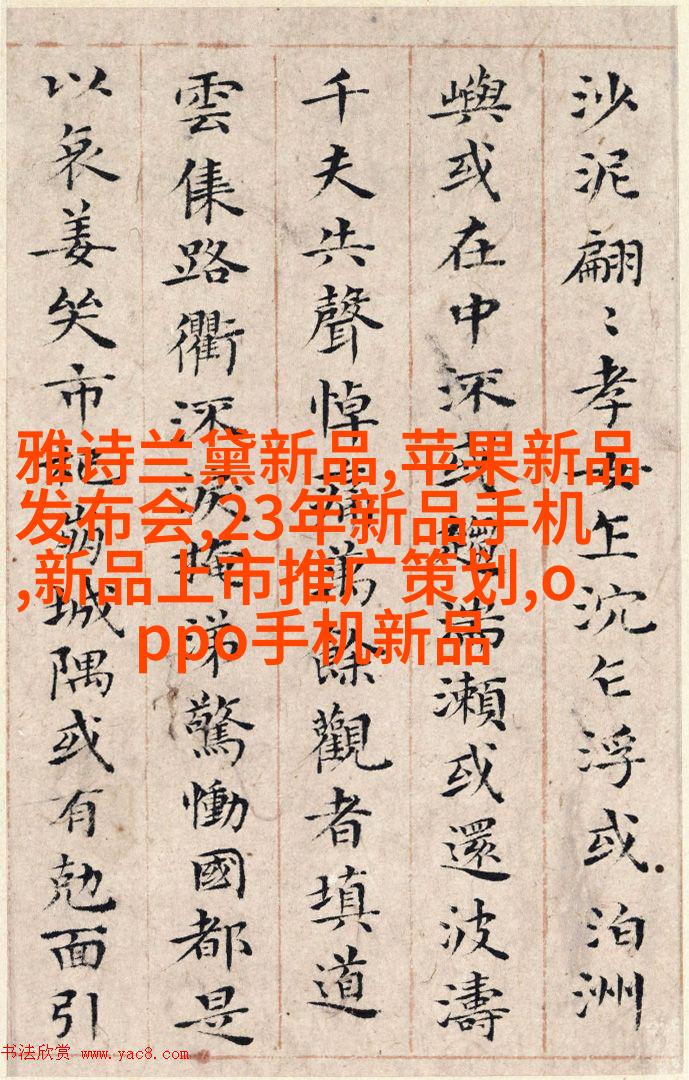 沙泥翩〻孝女乍沉乍浮或泊洲
嶼或在中流或趨湍瀨或還波濤
千夫失聲悼痛萬餘觀者填道
雲集路衢流淚掩涕驚慟國都是
以哀姜哭市杞崩城隅或有勊面引
雅诗兰黛新品,苹果新品
发布会,23年新品手机
,新品上市推广策划,o
ppo手机新品
书法欣赏 www.yac8.com